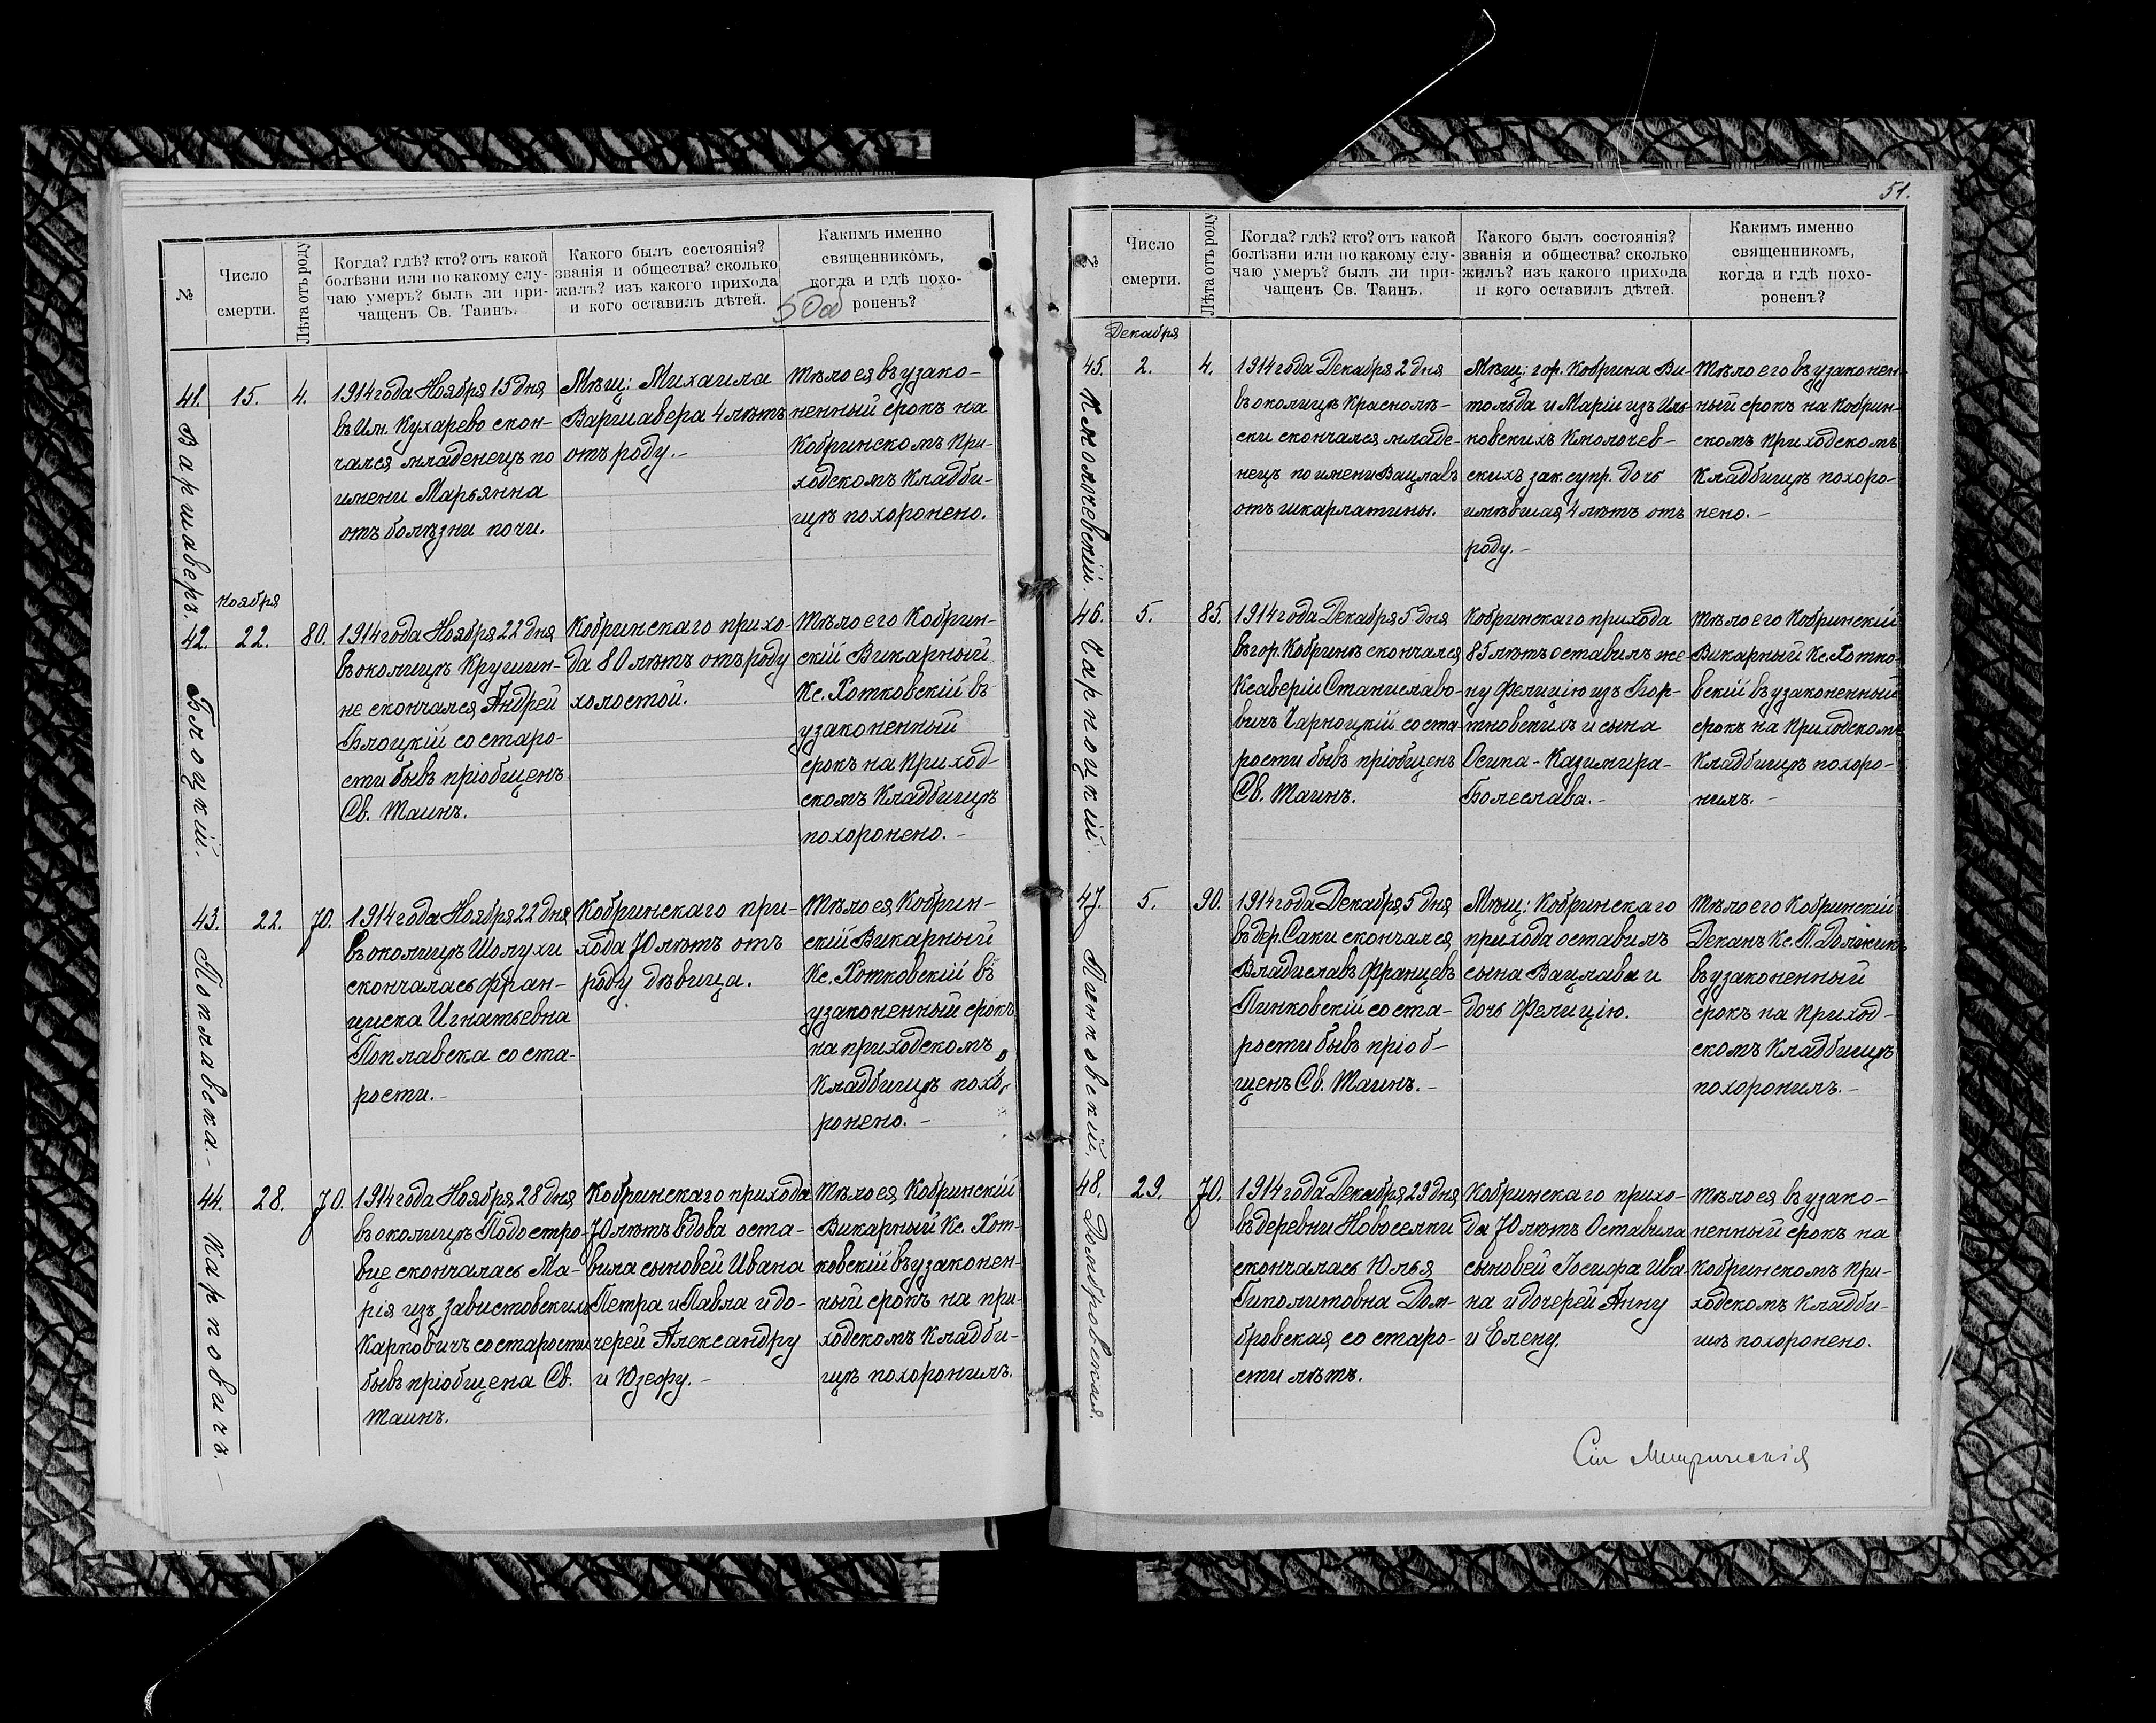 №
Число
смерти.
Лѣта отъ роду
Когда? гдѣ? кто? отъ какой
болѣзни или по какому слу-
чаю умеръ? былъ ли при-
чащенъ Св. Таинъ.
Какого былъ состоянія?
званія и общества? сколько
жилъ? изъ какого прихода
и кого оставилъ дѣтей.
Какимъ именно
священникомъ,
когда и гдѣ похо-
роненъ?
50об
41.
Варшаверъ.
15.
4.
1914 года Ноября 15 дня
въ Им. Кухарево скон-
чался младенецъ по
имени Марьянна
отъ болѣзни почи.
Мѣщ: Михаила
Варшавера 4 лѣтъ
отъ роду.-
Тѣло ея въ узако-
ненный срокъ на
Кобринскомъ При-
ходскомъ Кладби-
щѣ похоронено.
Ноября
42.
Блоцкій.
22.
80.
1914 года Ноября 22 дня
въ околицѣ Крушин-
не скончался Андрей
Блоцкій со старо-
сти бывъ пріобщенъ
Св. Таинъ.
Кобринскаго прихо-
да 80 лѣтъ отъ роду
холостой.
Тѣло его Кобрин-
скій Викарный
Кс. Хотковскій въ
узаконенный
срокъ на Приход-
скомъ Кладбищѣ
похоронено.-
43.
Поплавска.-
22.
70.
1914 года Ноября 22 дня
въ околицѣ Шолухи
скончалась Фран-
циска Игнатьевна
Поплавска со ста-
рости.-
Кобринскаго при-
хода 70 лѣтъ отъ
роду дѣвица.
Тѣло ея Кобрин-
скій Викарный
Кс. Хотковскій въ
узаконенный срокъ
на приходскомъ
Кладбищѣ похо-
ронено.-
44.
Карповичъ.-
28.
70.
1914 года Ноября 28 дня
въ околицѣ Подостро-
вце скончалась Ма-
рія изъ Завистовскихъ
Карповичъ со старости
бывъ пріобщена Св.
Таинъ.
Кобринскаго прихода
70 лѣтъ вдова оста-
вила сыновей Ивана
Петра и Павла и до-
черей Александру
и Юзефу.-
Тѣло ея Кобринскій
Викарный Кс. Хот-
ковскій въ узаконен-
ный срокъ на при-
ходскомъ Кладби-
щѣ похоронилъ.
51.
№
Число
смерти.
Лѣта отъ роду
Когда? гдѣ? кто? отъ какой
болѣзни или по какому слу-
чаю умеръ? былъ ли при-
чащенъ Св. Таинъ.
Какого былъ состоянія?
званія и общества? сколько
жилъ? изъ какого прихода
и кого оставилъ дѣтей.
Какимъ именно
священникомъ,
когда и гдѣ похо-
роненъ?
Декабря
45.
Кмолчевскій.
2.
4.
1914 года Декабря 2 дня
въ околицѣ Краснолѣ-
ски скончался младе-
нецъ по имени Вацлавъ
отъ шкарлатины.
Мѣщ: гор. Кобрина Ви-
тольда и Маріи изъ Иль-
ковскихъ Кмолочев-
скихъ зак. супр. дочь
имѣвшая 4 лѣтъ отъ
роду.-
Тѣло его въ узаконен-
ный срокъ на Кобрин-
скомъ приходскомъ
Кладбищѣ похоро-
нено.-
46.
Чарноцкій.
5.
85.
1914 года Декабря 5 дня
въ гор. Кобринѣ скончался
Ксаверій Станиславо-
вичъ Чарноцкій со ста-
рости бывъ пріобщенъ
Св. Таинъ.
Кобринскаго прихода
85 лѣтъ оставилъ же-
ну Фелицію изъ Бор-
тновскихъ и сына
Осипа-Казимира-
Болеслава.-
Тѣло его Кобринскій
Викарный Кс. Хотко-
вскій въ узаконенный
срокъ на Приходскомъ
Кладбищѣ похоро-
нилъ.-
47.
Пинковскій.
5.
90.
1914 года Декабря 5 дня
въ дер. Саки скончался
Владиславъ Францевъ
Пинковскій со ста-
рости бывъ пріоб-
щенъ Св. Таинъ.-
Мѣщ: Кобринскаго
прихода оставилъ
сына Вацлава и
дочь Фелицію.
Тѣло его Кобринскій
Деканъ Кс. П.
въ узаконенный
срокъ на Приход-
скомъ Кладбищѣ
похоронилъ.-
48.
Домбровская.
29.
70.
1914 года Декабря 29 дня
въ деревни Новоселки
скончалась Юлья
Гиполитовна Дом-
бровская со старо-
сти лѣтъ.
Кобринскаго прихо-
да 70 лѣтъ Оставила
сыновей Іосифа Ива-
на и дочерей Анну
и Елену.
Тѣло ея въ узако-
ненный срокъ на
Кобринскомъ При-
ходскомъ Кладби-
щѣ похоронено.
Сіи Метрическія